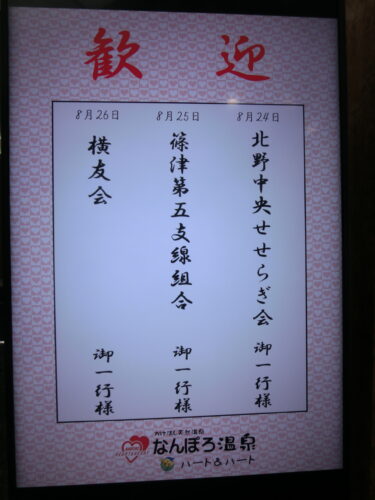 歓迎
8月24日
北野中央せせらぎ会 御一行様
8月25日
篠津第五支線組合 御一行様
8月26日
横友会 御一行様
なんぽろ温泉
ハート&ハート